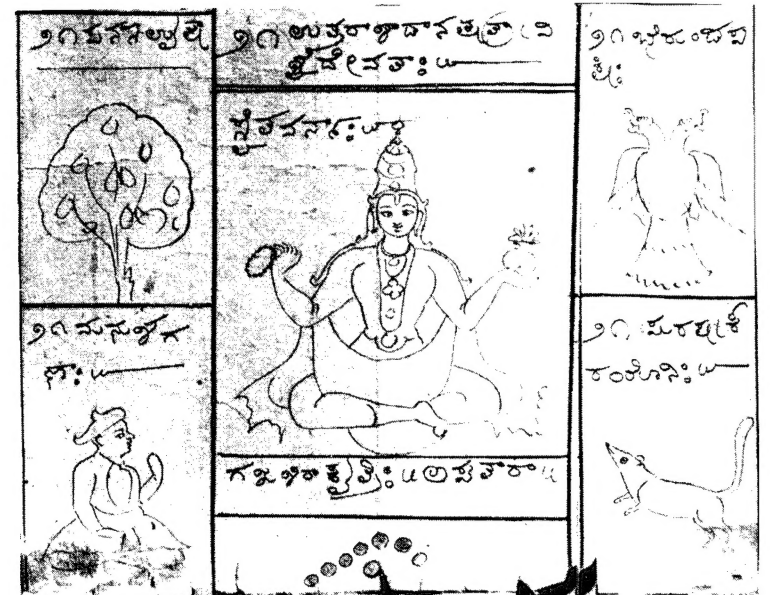 ೨೧ ಪನಸವೃಕ್ಷ
೨೧ ಉತ್ತರಾಷಾಡಾನಕ್ಷತ್ರಾ ವಿ
ಶ್ವೇದೇವತಾಃ ॥
೨೧ ಭೇರುಂಡಪ
ಕ್ಷಿಃ
ಶ್ವೇತವರ್ಣಃ ॥
೨೧ ಮನುಷ್ಯಗ
ಣಃ ॥
೨೧
ಯೋನಿಃ ॥
ಗಜಶಿರಾಕೃತಿಃ ॥ ಅಷ್ಟತಾರಾ ॥